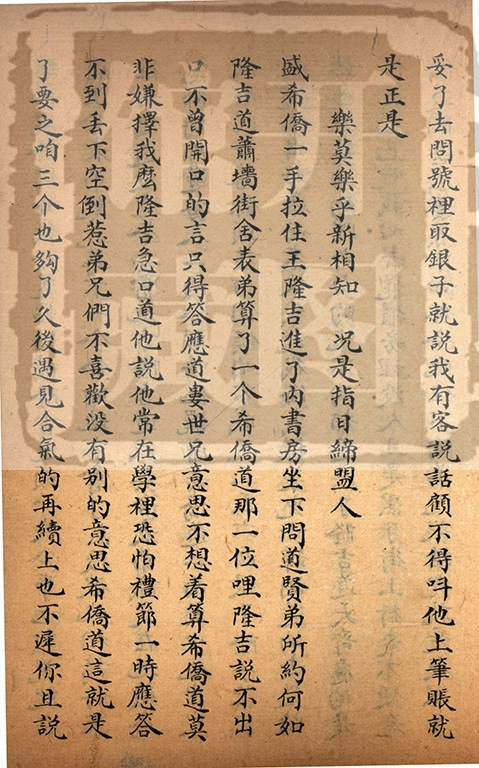 妥了去問號裡取銀子就説我有客説話顧不得呌他上筆賬就
是正是
樂莫樂乎新相知 况是指日締盟人
盛希僑一手拉住王隆吉進了内書房坐下問道賢弟所約何如
隆吉道蕭墻街舍表弟算了一个希僑道那一位哩隆吉説不出
口不曾開口的言只得答應道婁世兄意思不想着算希僑道莫
非嫌擇我麽隆吉急口道他説他常在學裡恐怕禮節一時應答
不到丢下空倒惹弟兄們不喜歡没有别的意思希僑道這就是
了要之咱三个也夠了久後遇見合氣的再續上也不遲你且説